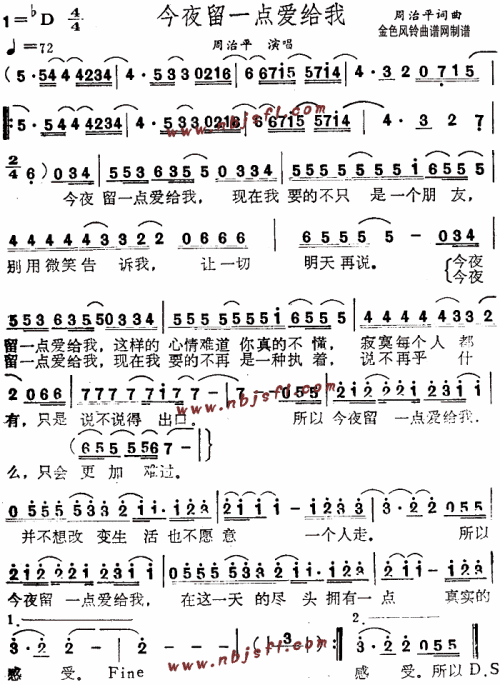 今夜留一点爱给我
1=♭D 4/4
周治平词曲
♩=72
周治平 演唱
金色风铃曲谱网制谱
(5·544 4234 | 4·533 0216 | 66715 5714 | 4·32 0715 |
www.nbjsfl.com
5·544 4234 | 4·533 0216 | 66715 5714 | 4·3 2 7 |
2/4 6·) 034 | 553635 5 0334 | 555 5555 21 6555 |
今夜 留一点爱给我, 现在我 要的不只 是一个朋友,
4444 4332 2 0666 | 6555 5 - 034 |
别用微笑告 诉我, 让一切 明天再说。 {今夜
今夜
553 6355 0334 | 5555 555 21 6555 |
留一点爱给我, 这样的 心情难道 你真的不懂, 寂寞每个人 都
留一点爱给我, 现在我 要的不再 是一种执着, 说不再乎 什
2 066 | 7777 7177 - | 7 - - 055 | 2122 221 2321 1 |
www.nbjsfl.com
有, 只是 说不说得 出口。 所以 今夜留 一点爱给我.
(655 5567 - |)
么, 只会 更加 难过。
0 555 5532 211·123 | 211 - 123 3 | 3·22 055 |
并不想改 变生 活也不愿意 一个人走。 所以
2122 221 2321 1 | 0555 55 532 211·123
今夜留 一点爱给我, 在这一天 的尽 头 拥有一 点 真实的
1. 2.
3·22 - | 2 - - - | (3) :‖ 3·22 055 ‖
www.nbjsfl.com
感 受。 Fine 感 受。所以D.S